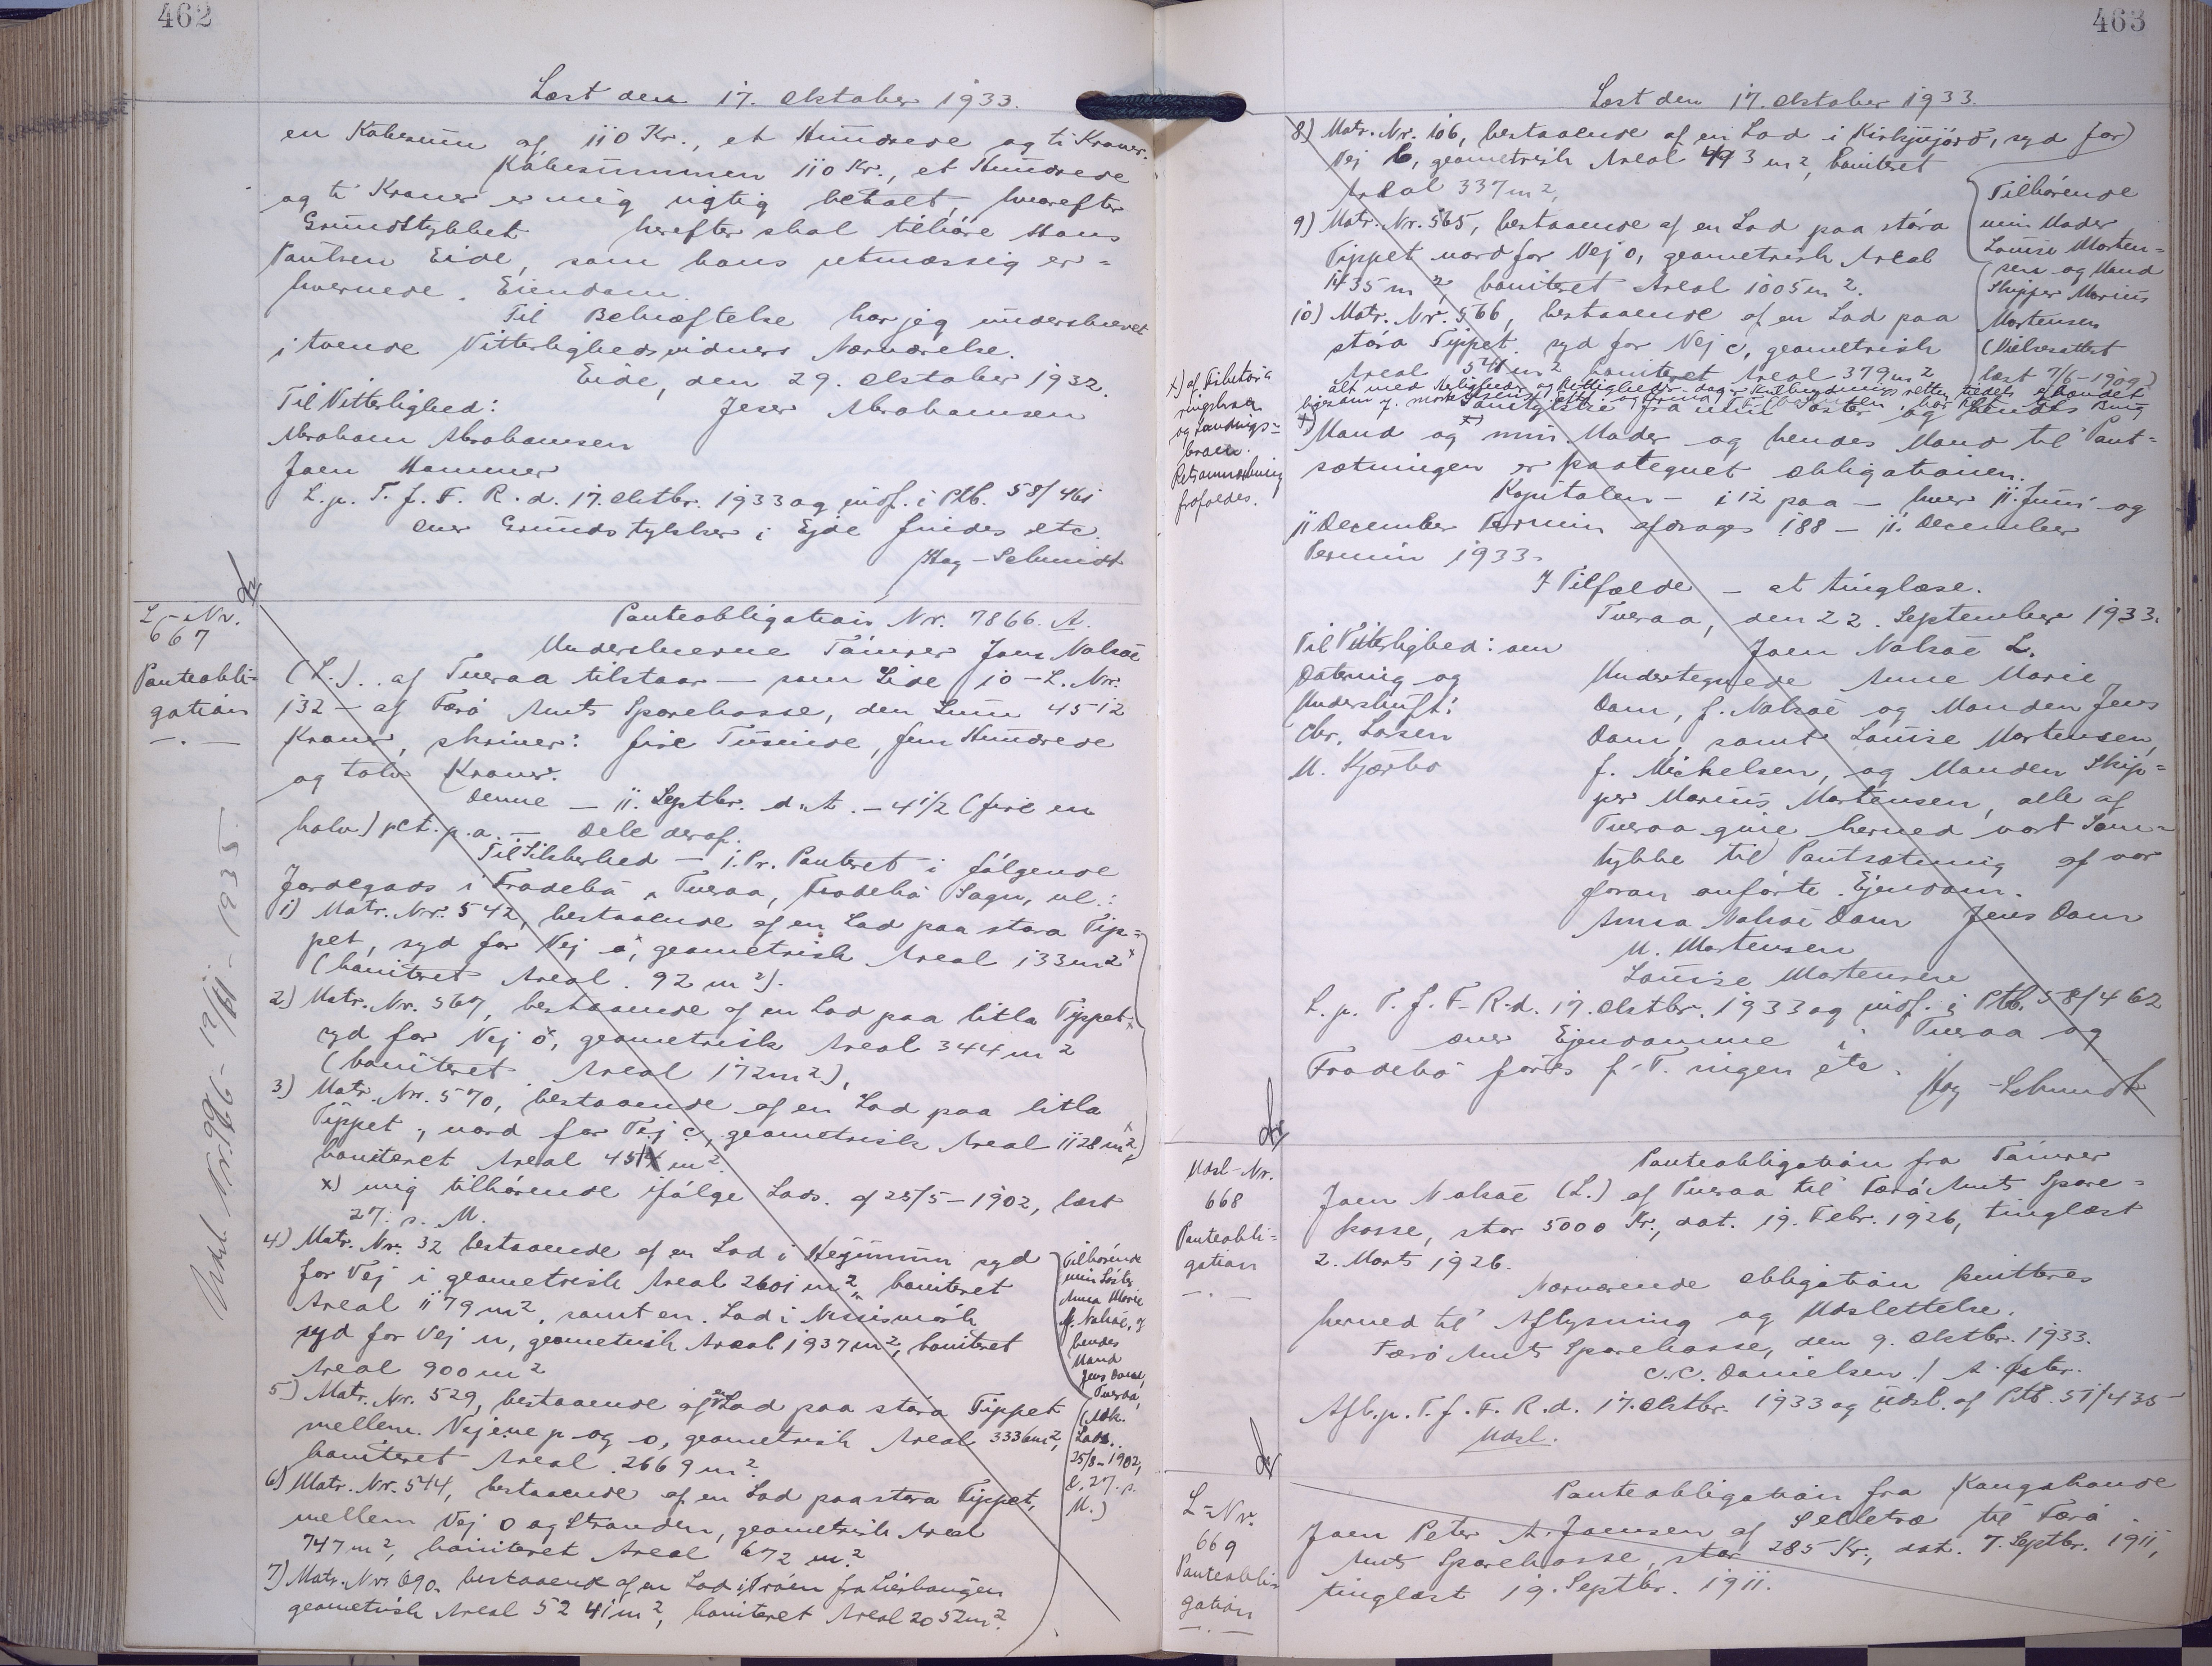 462
Læst den 17. Oktober 1933.
en Købesum af 110 Kr., et Hundrede og ti Kroner.
Købesummen 110 Kr., et Hundrede
og ti Kroner er mig rigtig betalt, hvorefter
Grundstykket herefter skal tilhøre Hans
Poulsen Eide, som hans retmæssig er=
hvervede Eiendom.
Til Bekræftelse har jeg underskrevet
i tvende Vitterlighedsvidners Nærværelse.
Eide, den 29. Oktober 1932.
Til Vitterlighed: Jeser Abrahamsen
Abraham Abrahamsen
Joen Hammer
L. p. T. f. F. R. d. 17. Oktbr. 1933 og indf. i Ptb. 58/461
Over Grundstykker i Ejde findes etc.
Høg-Schmidt
L-Nr.
667
Panteobli-
gation
Udsl Nr. 966 - 12/11 - 1935.
Panteobligation Nr. 7866. A.
Underskrevne Tømrer Joen Nolsøe
(L.). af Tveraa tilstaar — som Side 10 - L. Nr.
132 — af Færø Amts Sparekasse, den Sum 4512
Kroner, skriver: fire Tusinde, fem Hundrede
og tolv Kroner.
Denne — 11. Septbr. d. A. — 4 1/2 (fire en
halv) pct. p. a. — Dele deraf.
Til Sikkerhed — 1. Pr. Panteret i følgende
Jordegods i Frodebø, Tveraa, Frodebø Sogn, nl.:
1) Matr. Nr. 542, bestaaende af en Lod paa stora Tip=
pet, syd for Vej o, geometrisk Areal 133 m2
(boniteret Areal 92 m2).
2) Matr. Nr. 567, bestaaende af en Lod paa litla Tippet
syd for Vej o, geometrisk Areal 344 m2
(boniteret Areal 172 m2),
3) Matr. Nr. 570, bestaaende af en Lod paa litla
Tippet, nord for Vej c, geometrisk Areal 1128 m2,
boniteret Areal 451 m2.
x) mig tilhørende ifølge Lods. af 25/5 - 1902, læst
27. s. M.
4) Matr. Nr. 32 bestaaende af en Lod i Hegnunum syd
for Vej i geometrisk Areal 2601 m2, boniteret
Areal 1179 m2, samt en Lod i
syd for Vej n, geometrisk Areal 1937 m2, boniteret
Areal 900 m2
5) Matr. Nr. 529, bestaaende af en Lod paa stora Tippet
mellem Vejene p og o, geometrisk Areal 3336 m2,
boniteret Areal 2669 m2.
6) Matr. Nr. 544, bestaaende af en Lod paa stora Tippet,
mellem Vej o og Stranden, geometrisk Areal
747 m2, boniteret Areal 672 m2
7) Matr. Nr. 690, bestaaende af en Lod i Trøen fra
geometrisk Areal 5241 m2, boniteret Areal 2052 m2.
Tilhørende
min Søster
Anna Marie
f. Nolsøe, og
hendes
Mand
Jens Dam,
Tveraa,
(Adk.
Lods.
25/8 - 1902,
l. 27. s.
M.)
463
Læst den 17. Oktober 1933.
8) Matr. Nr. 106, bestaaende af en Lod i Kirkjujørd, syd for
Vej b, geometrisk Areal 493 m2, boniteret
Areal 337 m2,
9) Matr. Nr. 565, bestaaende af en Lod paa stóra
Tippet nord for Vej o, geometrisk Areal
1435 m2, boniteret Areal 1005 m2.
10) Matr. Nr. 566, bestaaende af en Lod paa
stóra Tippet syd for Vej c, geometrisk
Areal 541 m2 boniteret Areal 379 m2
Tilhørende
min Moder
Louise Morten=
sen og Mand
Skipper Marius
Mortensen
(Vielsesattest
læst 7/6 - 1909)
alt med Herligheder og Rettigheder
Samtykke fra min Søster og hendes
Mand og min Moder og hendes Mand til Pant=
sætningen er paategnet Obligationen.
x) af
og Landings=
broen.
Retsanmærkning
frafaldes.
Kapitalen — i 12 paa — hver 11. Juni og
11 December Termin afdrages 188 — 11. December
Termin 1933.
I Tilfælde — at tinglæse.
Tveraa, den 22. September 1933.
Til Vitterlighed: om Joen Nolsøe L.
Datering og
Underskrift:
Chr. Larsen
M. Kjærbo
Undertegnede Anne Marie
Dam, f. Nolsøe og Manden Jens
Dam, samt Louise Mortensen,
f. Michelsen, og Manden Skip=
per Marius Mortensen, alle af
Tveraa give herved vort Sam=
tykke til Pantsætning af vor
foran anførte Ejendom.
Anna Nolsøe Dam Jens Dam
M. Mortensen
Louise Mortensen
L. p. T. f. F. R. d. 17. Oktbr. 1933 og indf. i Ptb. 58/462
over Ejendomme i Tveraa og
Frodebø føres f. T. ingen etc.
Høg-Schmidt
Udsl-Nr.
668
Panteobli=
gation
Panteobligation fra Tømrer
Joen Nolsøe (L.) af Tveraa til Færø Amts Spare=
kasse, stor 5000 Kr., dat. 19. Febr. 1926, tinglæst
2. Marts 1926.
Nærværende Obligation kvitteres
herved til Aflysning og Udslettelse.
Færø Amts Sparekasse, den 9. Oktbr. 1933.
C. C. Danielsen / A. Øster.
Afl. p. T. f. F. R. d. 17. Oktbr. 1933 og udsl. af Ptb. 51/435
Udsl.
L-Nr.
669
Panteobli-
gation
Panteobligation fra Kongsbonde
Joen Peter A. Joensen af Selletræ til Færø
Amts Sparekasse, stor 285 Kr., dat. 7. Septbr. 1911,
tinglæst 19. Septbr. 1911.